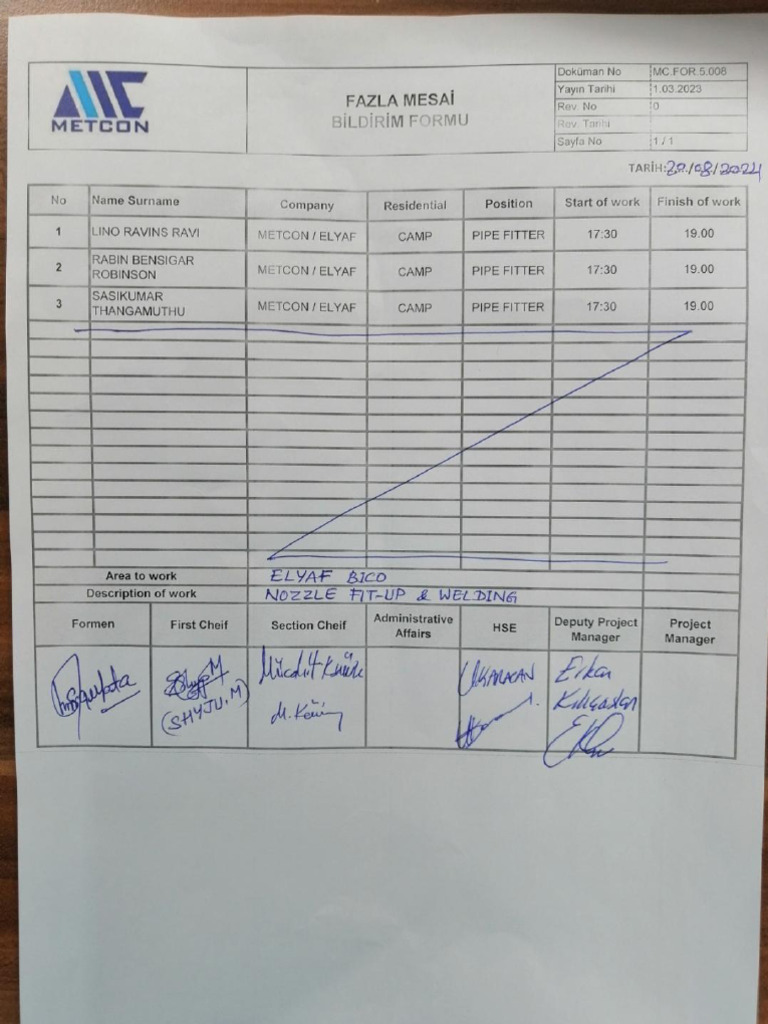 METCON
FAZLA MESAİ
BİLDİRİM FORMU
Doküman No MC.FOR.5.008
Yayın Tarihi 1.03.2023
Rev. No 0
Rev. Tarihi
Sayfa No 1 / 1
TARİH: /08/2024
No Name Surname Company Residential Position Start of work Finish of work
1 LINO RAVINS RAVI METCON / ELYAF CAMP PIPE FITTER 17:30 19.00
2 RABIN BENSIGAR ROBINSON METCON / ELYAF CAMP PIPE FITTER 17:30 19.00
3 SASIKUMAR THANGAMUTHU METCON / ELYAF CAMP PIPE FITTER 17:30 19.00
Area to work ELYAF BICO
Description of work NOZZLE FIT-UP & WELDING
Formen First Cheif Section Cheif Administrative Affairs HSE Deputy Project Manager Project Manager
(SHYJU.M)
U.KARACAN
Erkan